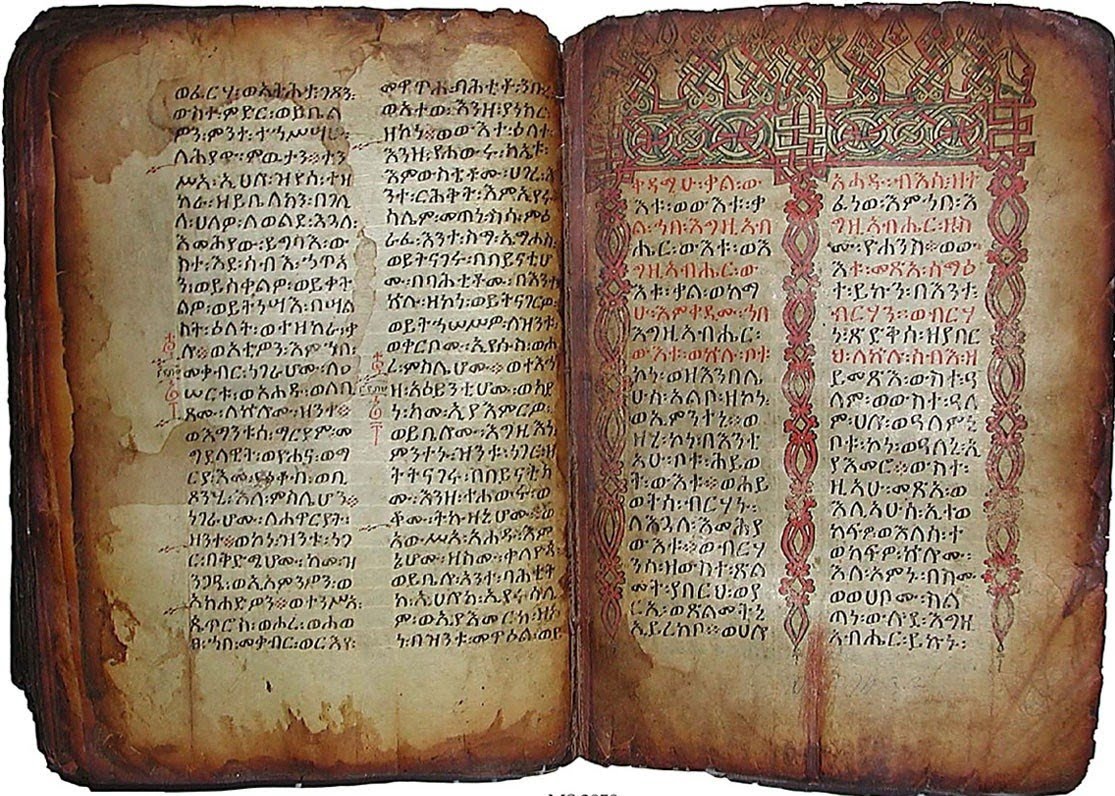 ወፈርሃ፡ወአትሐታ፡ገጾን፡
ውስተ፡ምድር፡ወይቤል
ዎን፡ምንተ፡ተኀሥሣሁ፡
ለሕያው፡ምዉተን፡ተን
ሥአ፡ኢሀሎ፡ዝየሰ፡ተዘ
ከራ፡ዘይቤለክን፡በገሊ
ላ፡ሀለዎ፡ለወልደ፡እጓለ፡
እመሕያው፡ይግባእ፡ው
ስተ፡እደ፡ሰብእ፡ኃጥአ
ን፡ወይሰቅልዎ፡ወይቀት
ልዎ፡ወይትነሣእ፡በሣል
ስት፡ዕለት፡ወተዘከራ፡ቃ
ሎ፡ወአቲዎን፡እምኀበ፡
መቃብር፡ነገራሆሙ፡ለዐ
ሠርቱ፡ወአሐዱ፡ወለቢ
ጾሙ፡ለኵሎሙ፡ዝንተ፡
ወእማንቱሰ፡ማርያም፡መ
ግደላዊት፡ወዮሐና፡ወማ
ርያ፡እመ፡ያዕቆብ፡ወቢ
ጾንሂ፡እለ፡ምስሌሆን፡
ነገራሆሙ፡ለሐዋርያት፡
ዝንተ፡ወኮነ፡ዝንቱ፡ነገ
ር፡በቅድሜሆሙ፡ከመ፡ዝ
ንጋዔ፡ወኢአምንዎን፡ወ
ክሕድዎን፡ወተንሥአ፡
ጴጥሮስ፡ወሖረ፡ወሖወ
ፀ፡ኀበ፡መቃብር፡ወርእየ፡
መዋጥሐ፡ባሕቲቶ፡ንቡረ
ወአተወ፡እንዘ፡ያነክር፡
ዘኮነ፡ወውእተ፡ዕለተ፡
እንዘ፡የሐውሩ፡ክልኤቱ፡
እምውስቴቶሙ፡ሀገረ፡
ንተ፡ርሕቅት፡እምኢየሩ
ሳሌም፡መጠነ፡ስሳ፡ምዕ
ራፈ፡እንተ፡ስማ፡ኤማሁስ
ወይትናገሩ፡በበይናቲሆ
ሙ፡በባሕቲቶሙ፡በእንተ
ኵሉ፡ዘኮነ፡ወይትናገርዎ
ወይትኀሠሥዎ፡ለዝንቱ፡
ወቀርቦሙ፡ኢየሱስ፡ወሖ
ረ፡ምስሌሆሙ፡ወተእኅ
ዘ፡አዕይንቲሆሙ፡ወከያ
ነ፡ከመ፡ኢያእምርዎ፡
ወይቤሎሙ፡እግዚእነ
ምንተኑ፡ዝንቱ፡ነገር፡ዘ
ትትናገሩ፡በበይናቲክ
ሙ፡እንዘ፡ተሐውሩ፡ወ
ቆሙ፡ትኩዛኒሆሙ፡ወ
አውሥአ፡አሐዱ፡እም
ኔሆሙ፡ዘስሙ፡ቀለዮጳ
ወይቤሎ፡አንተ፡ባሕቲት
ከ፡ኢሀሎከ፡ኢየሩሳሌ
ም፡ወኢያእመርከ፡ዘኮ
ነ፡በዝንቱ፡መዋዕል፡ወይ
ቀዳሚሁ፡ቃል፡ው
እቱ፡ወውእቱ፡ቃ
ል፡ኀበ፡እግዚአብ
ሔር፡ውእቱ፡ወእ
ግዚአብሔር፡ው
እቱ፡ቃል፡ወከማ
ሁ፡እምቀዳሙ፡ኀበ
እግዚአብሔር፡
ውእቱ፡ወኵሉ፡ቦቱ፡
ኮነ፡ወዘእንበሌ
ሁሰ፡አልቦ፡ዘኮነ፡
ወኢምንተኒ፡ወ
ዘሂ፡ኮነ፡በእንቲ
አሁ፡ቦቱ፡ሕይወ
ት፡ውእቱ፡ወሕይ
ወትሰ፡ብርሃኑ፡
ለእጓለ፡እመሕያ
ውእቱ፡ወብርሃ
ንሰ፡ዘውስተ፡ጽል
መት፡ያበርህ፡ወያ
ርኢ፡ወጽልመትኒ
ኢይረክቦ፡ወሀሎ
አሐዱ፡ብእሲ፡ዘተ
ፈነወ፡እም፡ኀበ፡እ
ግዚአብሔር፡ዘስ
ሙ፡ዮሐንስ፡ወው
እቱ፡መጽአ፡ለስምዕ
ት፡ይኩን፡በእንተ፡
ብርሃን፡ወብርሃ
ነ፡ጽድቅሰ፡ዘያበር
ህ፡ለኵሉ፡ሰብእ፡ዘ
ይመጽእ፡ውስተ፡ዓ
ለም፡ወውስተ፡ዓለ
ም፡ሀሎ፡ወዓለምኒ
ቦቱ፡ኮነ፡ወዓለኒ፡ኢ
ያእመሮ፡ውስተ፡
ዚአሁ፡መጽአ፡ወ
እሊአሁሰ፡ኢተወ
ክፍዎ፡ወእለሰ፡ተ
ወክፍዎ፡ኵሎሙ፡
እለ፡አምኑ፡በስሙ
ወወሀቦሙ፡ሥል
ጣነ፡ውሉደ፡እግዚ
አብሔር፡ይኩኑ፡